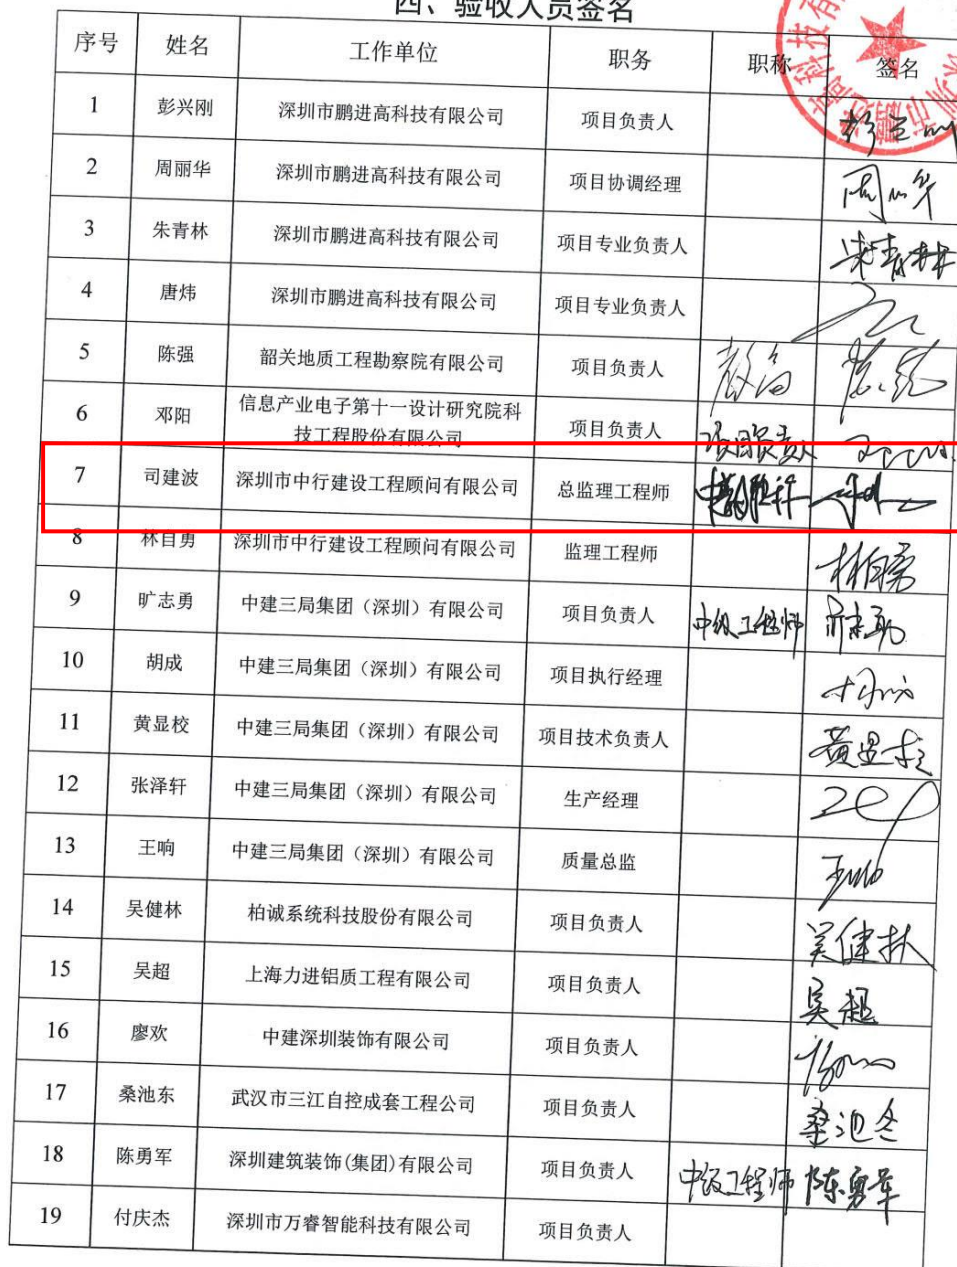 四、验收人员签名
序号 姓名 工作单位 职务 职称 签名
1 彭兴刚 深圳市鹏进高科技有限公司 项目负责人
2 周丽华 深圳市鹏进高科技有限公司 项目协调经理 周丽华
3 朱青林 深圳市鹏进高科技有限公司 项目专业负责人 朱青林
4 唐炜 深圳市鹏进高科技有限公司 项目专业负责人
5 陈强 韶关地质工程勘察院有限公司 项目负责人
6 邓阳 信息产业电子第十一设计研究院科
技工程股份有限公司 项目负责人 项目负责人
7 司建波 深圳市中行建设工程顾问有限公司 总监理工程师
8 林自勇 深圳市中行建设工程顾问有限公司 监理工程师 林自勇
9 旷志勇 中建三局集团（深圳）有限公司 项目负责人 中级工程师
10 胡成 中建三局集团（深圳）有限公司 项目执行经理
11 黄显校 中建三局集团（深圳）有限公司 项目技术负责人 黄显校
12 张泽轩 中建三局集团（深圳）有限公司 生产经理
13 王响 中建三局集团（深圳）有限公司 质量总监 王响
14 吴健林 柏诚系统科技股份有限公司 项目负责人 吴健林
15 吴超 上海力进铝质工程有限公司 项目负责人 吴超
16 廖欢 中建深圳装饰有限公司 项目负责人
17 桑池东 武汉市三江自控成套工程公司 项目负责人 桑池东
18 陈勇军 深圳建筑装饰(集团)有限公司 项目负责人 中级工程师 陈勇军
19 付庆杰 深圳市万睿智能科技有限公司 项目负责人